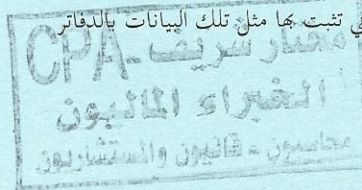 ي تثبت بها مثل تلك البيانات بالدفاتر
مختار شريف - CPA
الخبراء الماليون
محاسبون - قانونيون والمستشاريون